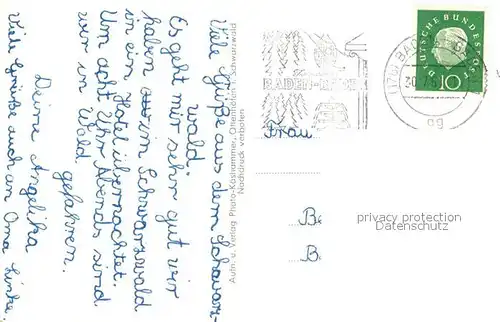 Viele Grüße aus dem Schwarz-
wald.
Es geht mir sehr gut wir
haben in Schwarzwald
in ein. Hotel übernachtet.
Um acht Uhr Abends sind
wir in Wald
gefahren.
Deine Angelika
Viele Grüße auch an Oma Linke.
Aufn. u. Verlag Photo-Koshammer, Ottenhöfen i. Schwarzwald
Nachdruck verboten
BADEN-BADEN
DEUTSCHE BUNDESPOST
10
Frau
Be
B.
privacy protection
Datenschutz